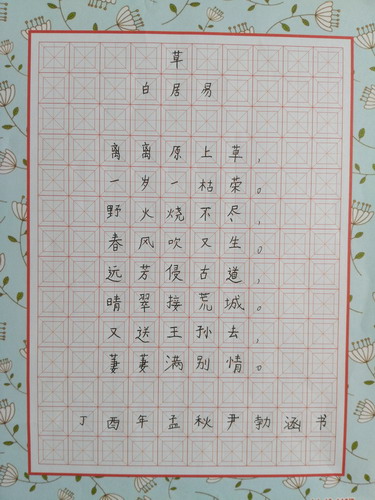 草
白居易
离离原上草，
一岁一枯荣。
野火烧不尽，
春风吹又生。
远芳侵古道，
晴翠接荒城。
又送王孙去，
萋萋满别情。
丁酉年孟秋尹勃涵书